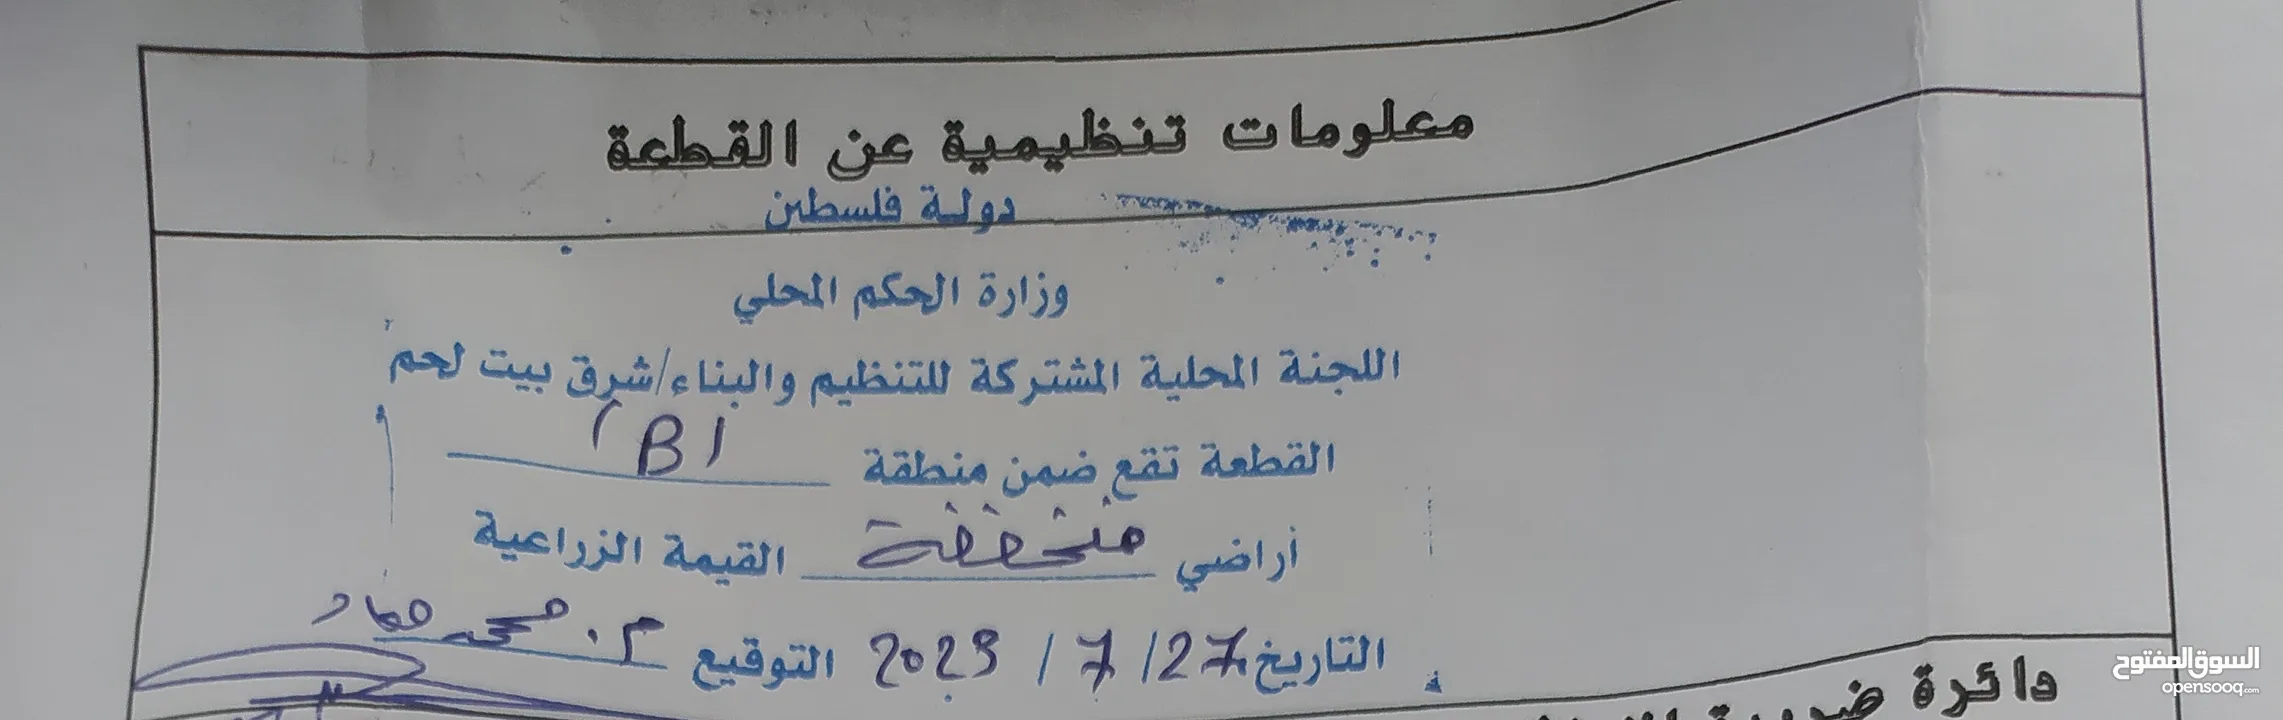 معلومات تنظيمية عن القطعة
دولة فلسطين
وزارة الحكم المحلي
اللجنة المحلية المشتركة للتنظيم والبناء/شرق بيت لحم
القطعة تقع ضمن منطقة (B)
أراضي منخفضة القيمة الزراعية
التاريخ 27 / 7 / 2023 التوقيع م. محمد حماد
دائرة ضريبة
السوق المفتوح
opensooq.com